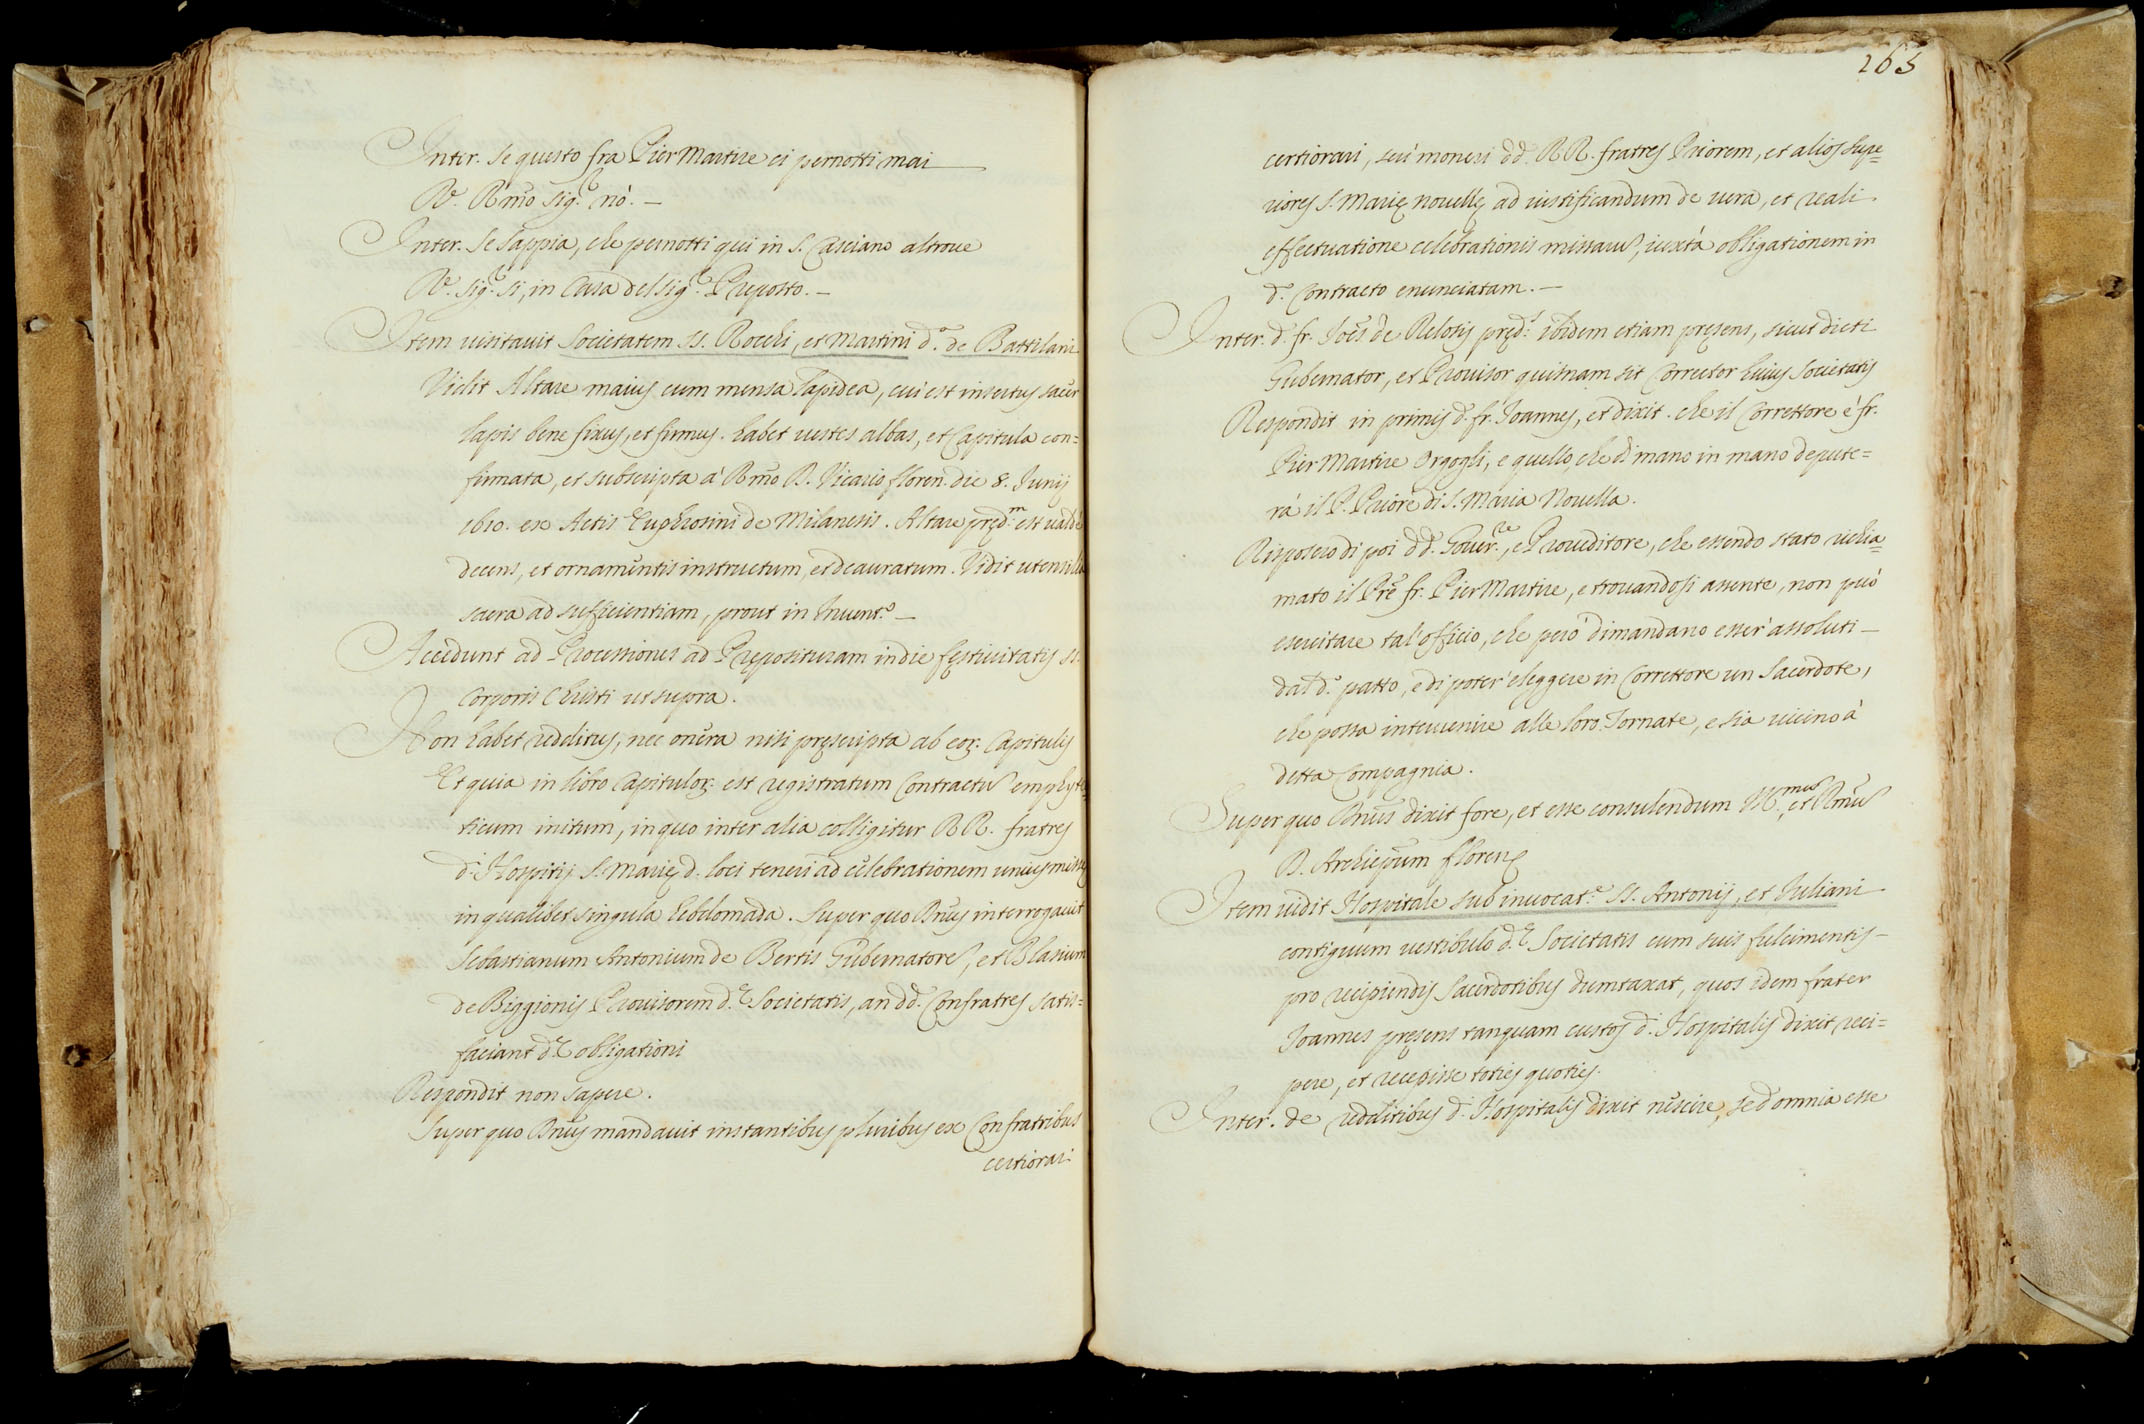 Inter. Se questo fra Pier Martire ci pernotti mai
R. Rmo Sig.re nò. —
Inter. Se sappia, che pernotti qui in S. Casciano altroue
R. Sig.re si, in Casa del Sig.re Preposto. —
Item uisitauit Societatem SS. Rocchi, et Martini d.a de Battilani
Vidit Altare maius cum mensa lapidea, cui est insertus sacer
lapis bene fixus, et firmus. habet uestes albas, et Capitula con=
firmata, et subscripta à Rmo D. Vicario floren. die 8. Junij
1610. ex Actis Euphrosini de Milanesis. Altare pręd.m est ualdè
decens, et ornamentis instructum, et deauratum. Vidit utensilia
sacra ad sufficientiam, prout in Inuent.o —
Accedunt ad Processiones ad Pręposituram in die festiuitatis SS.
Corporis Christi ut supra.
Non habet redditus, nec onera nisi pręscripta ab eor. Capitulis
Et quia in libro Capitulor. est registratum Contractũ emphyte=
ticum initum, in quo inter alia colligitur RR. fratres
d.i Hospitij S. Marię d. loci teneri ad celebrationem unius missę
in qualibet singula hebdomada. Super quo Dnus interrogauit
Sebastianum Antonium de Bertis Gubernatorẽ, et Blasium
de Biggionis Prouisorem d.ę Societatis, an dd. Confratres satis=
faciant d.ę obligationi
Respondit non sapere.
Super quo Dnus mandauit instantibus pluribus ex Confratribus
certiorari
265
certiorari, seù moneri dd. RR. fratres Priorem, et alios supe=
riores S. Marię Nouellę ad iustificandum de uera, et reali
effectuatione celebrationis missarũ, iuxtà obligationem in
d.o Contracto enunciatam. —
Inter. d. fr. Joẽs de Relotis pręd.s ibidem etiam pręsens, sicut dicti
Gubernator, et Prouisor quisnam sit Corrector huius Societatis
Respondit in primis d. fr. Joannes, et dixit. che il Correttore è fr.
Pier Martire Orgogli, e quello che di mano in mano depute=
rà il P. Priore di S. Maria Nouella.
Risposero di poi dd. Gouer.re, e Proueditore, che essendo stato richia=
mato il Prẽ fr. Pier Martire, e trouandosi assente, non può
esercitare tal' officio, che però dimandano esser' assoluti —
dal d.o patto, e di poter' eleggere in Correttore un Sacerdote,
che possa interuenire alle loro Tornate, e sia uicino à
detta Compagnia.
Super quo Dnus dixit fore, et esse consulendum Ill.mum et Rmũ
D. Archiepũm florenę
Item uidit Hospitale sub inuocat.e SS. Antonij, et Juliani
contiguum uestibulo d.ę Societatis cum suis fulcimentis —
pro recipiendis Sacerdotibus dumtaxat, quos idem frater
Joannes pręsens tanquam custos d.i Hospitalis dixit reci=
pere, et recepisse toties quoties.
Inter. de redditibus d.i Hospitalis dixit nescire, sed omnia esse